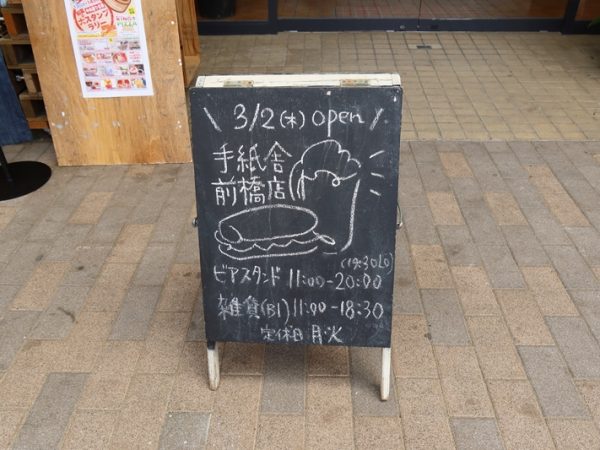 \ 3/2(木) open /
手紙舎
前橋店
(19:30LO)
ビアスタンド 11:00-20:00
雑貨(B1) 11:00-18:30
定休日 月・火
スタンプ
ラリー
PIZZA